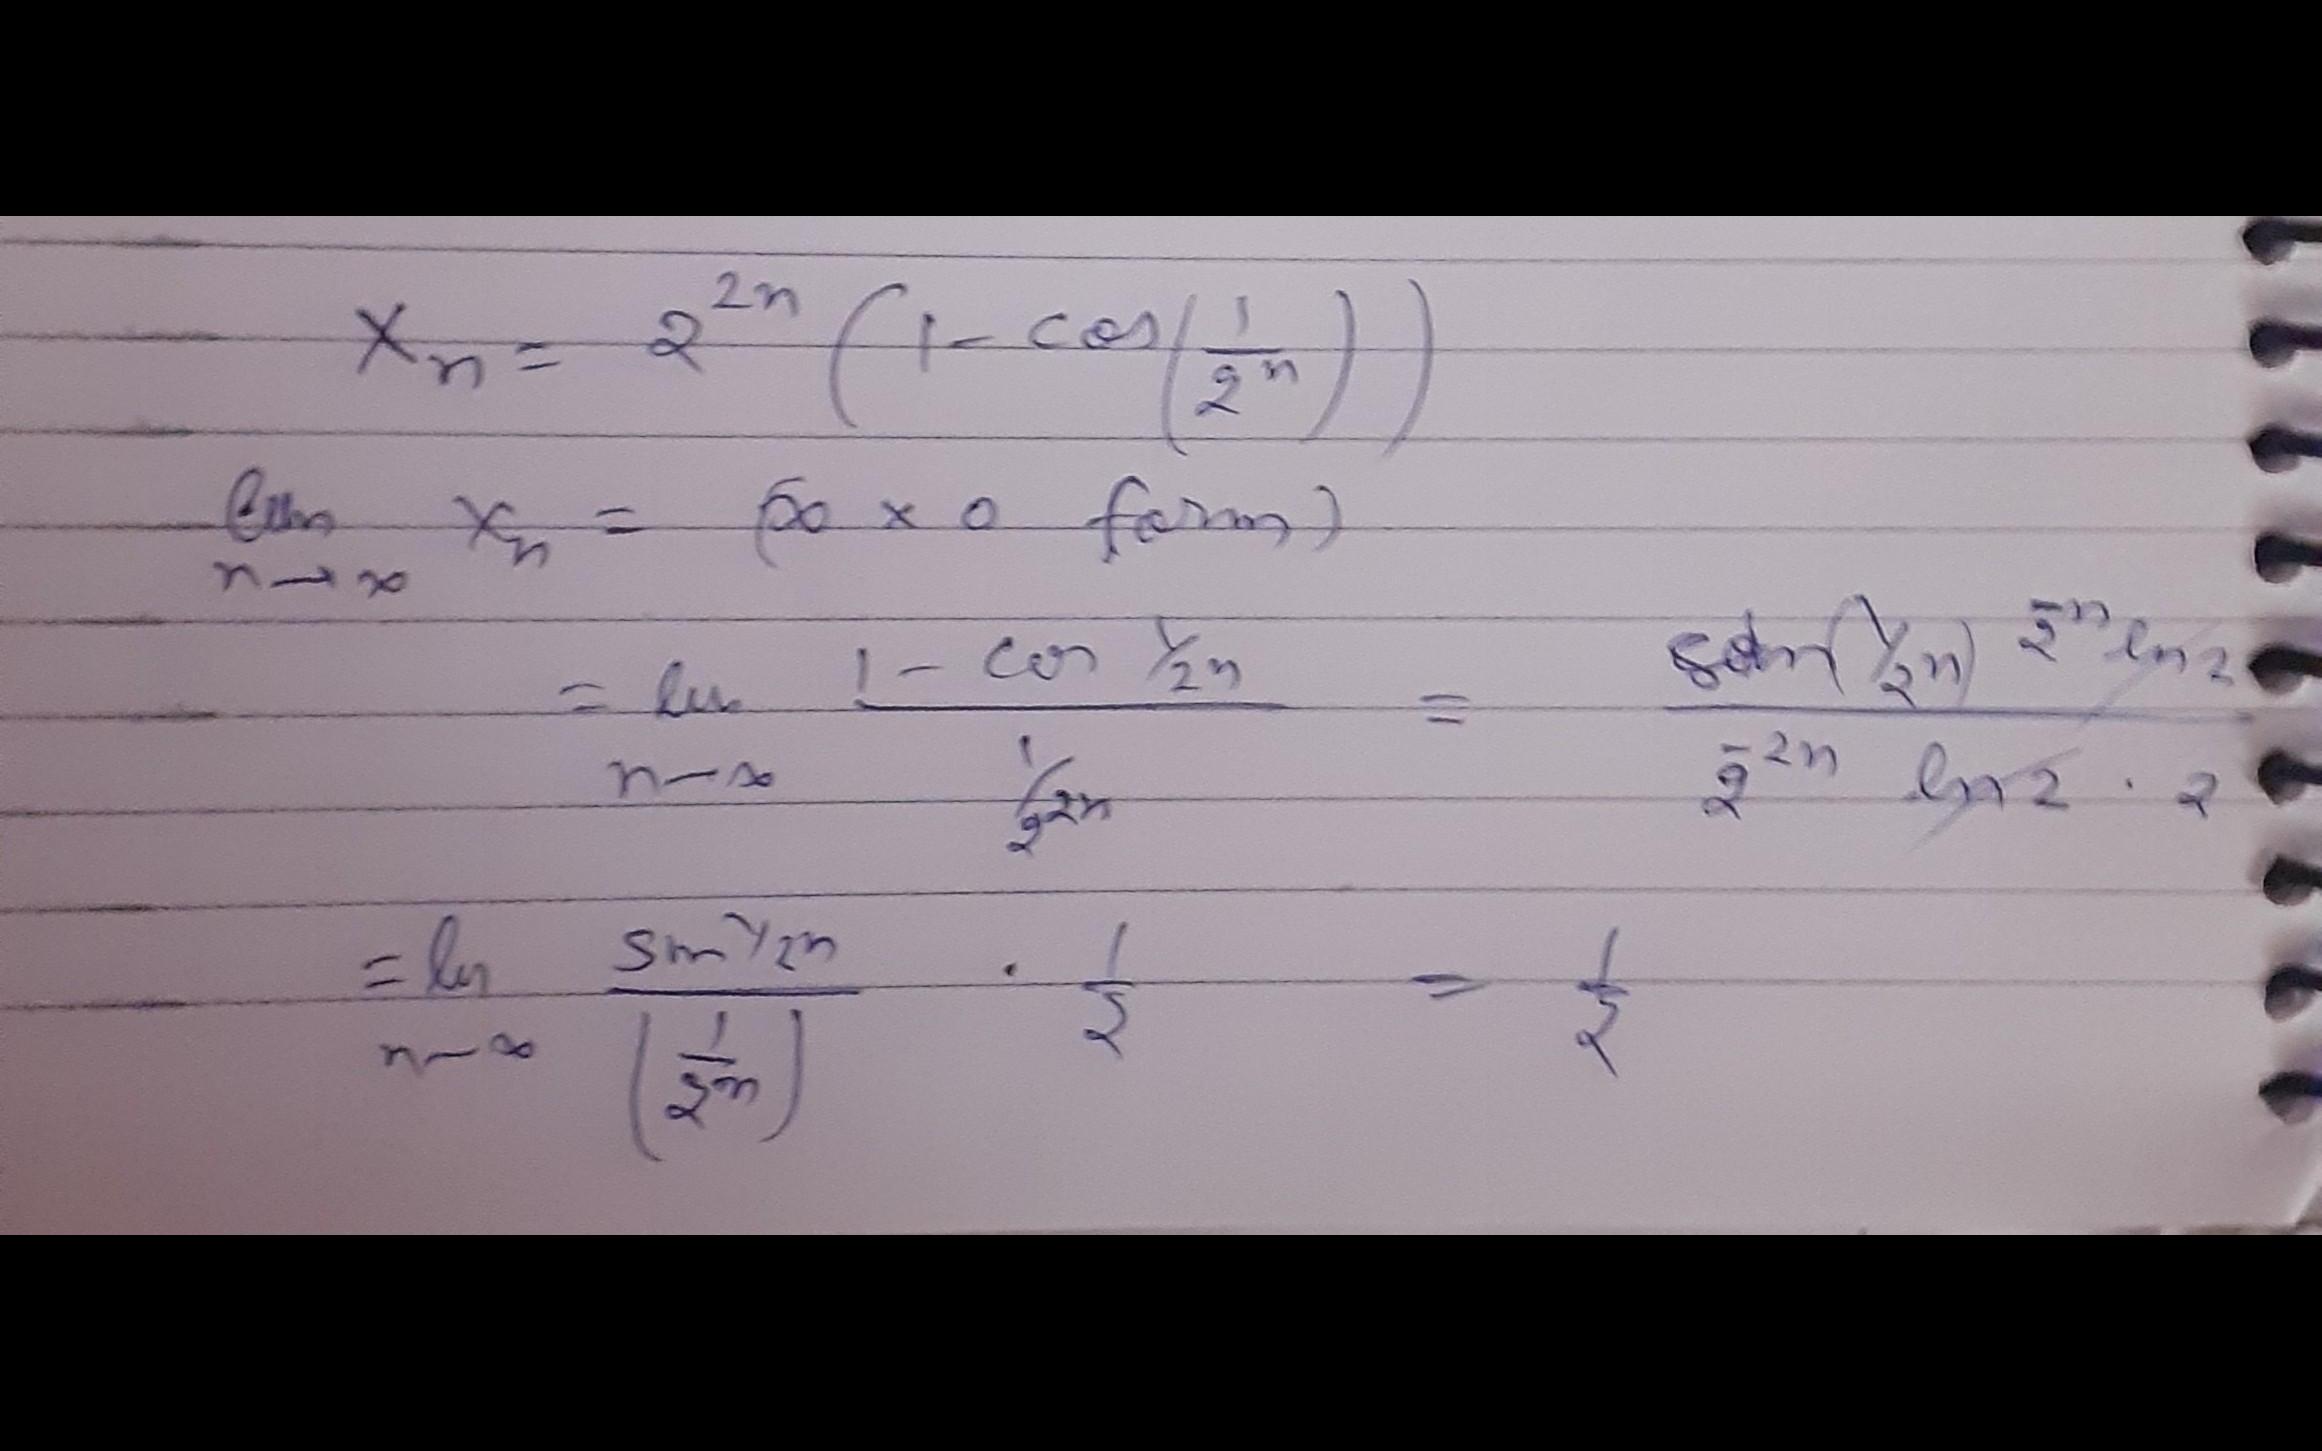 Xn = 2^2n (1 - cos(1/2^n))
lim n→∞ Xn = (∞ × 0 form)
= lim n→∞ (1 - cos 1/2^n) / (1/2^2n) = (sin(1/2^n) 2^-n ln 2) / (2^-2n ln 2 · 2)
= lim n→∞ (sin 1/2^n) / (1/2^n) · 1/2 = 1/2